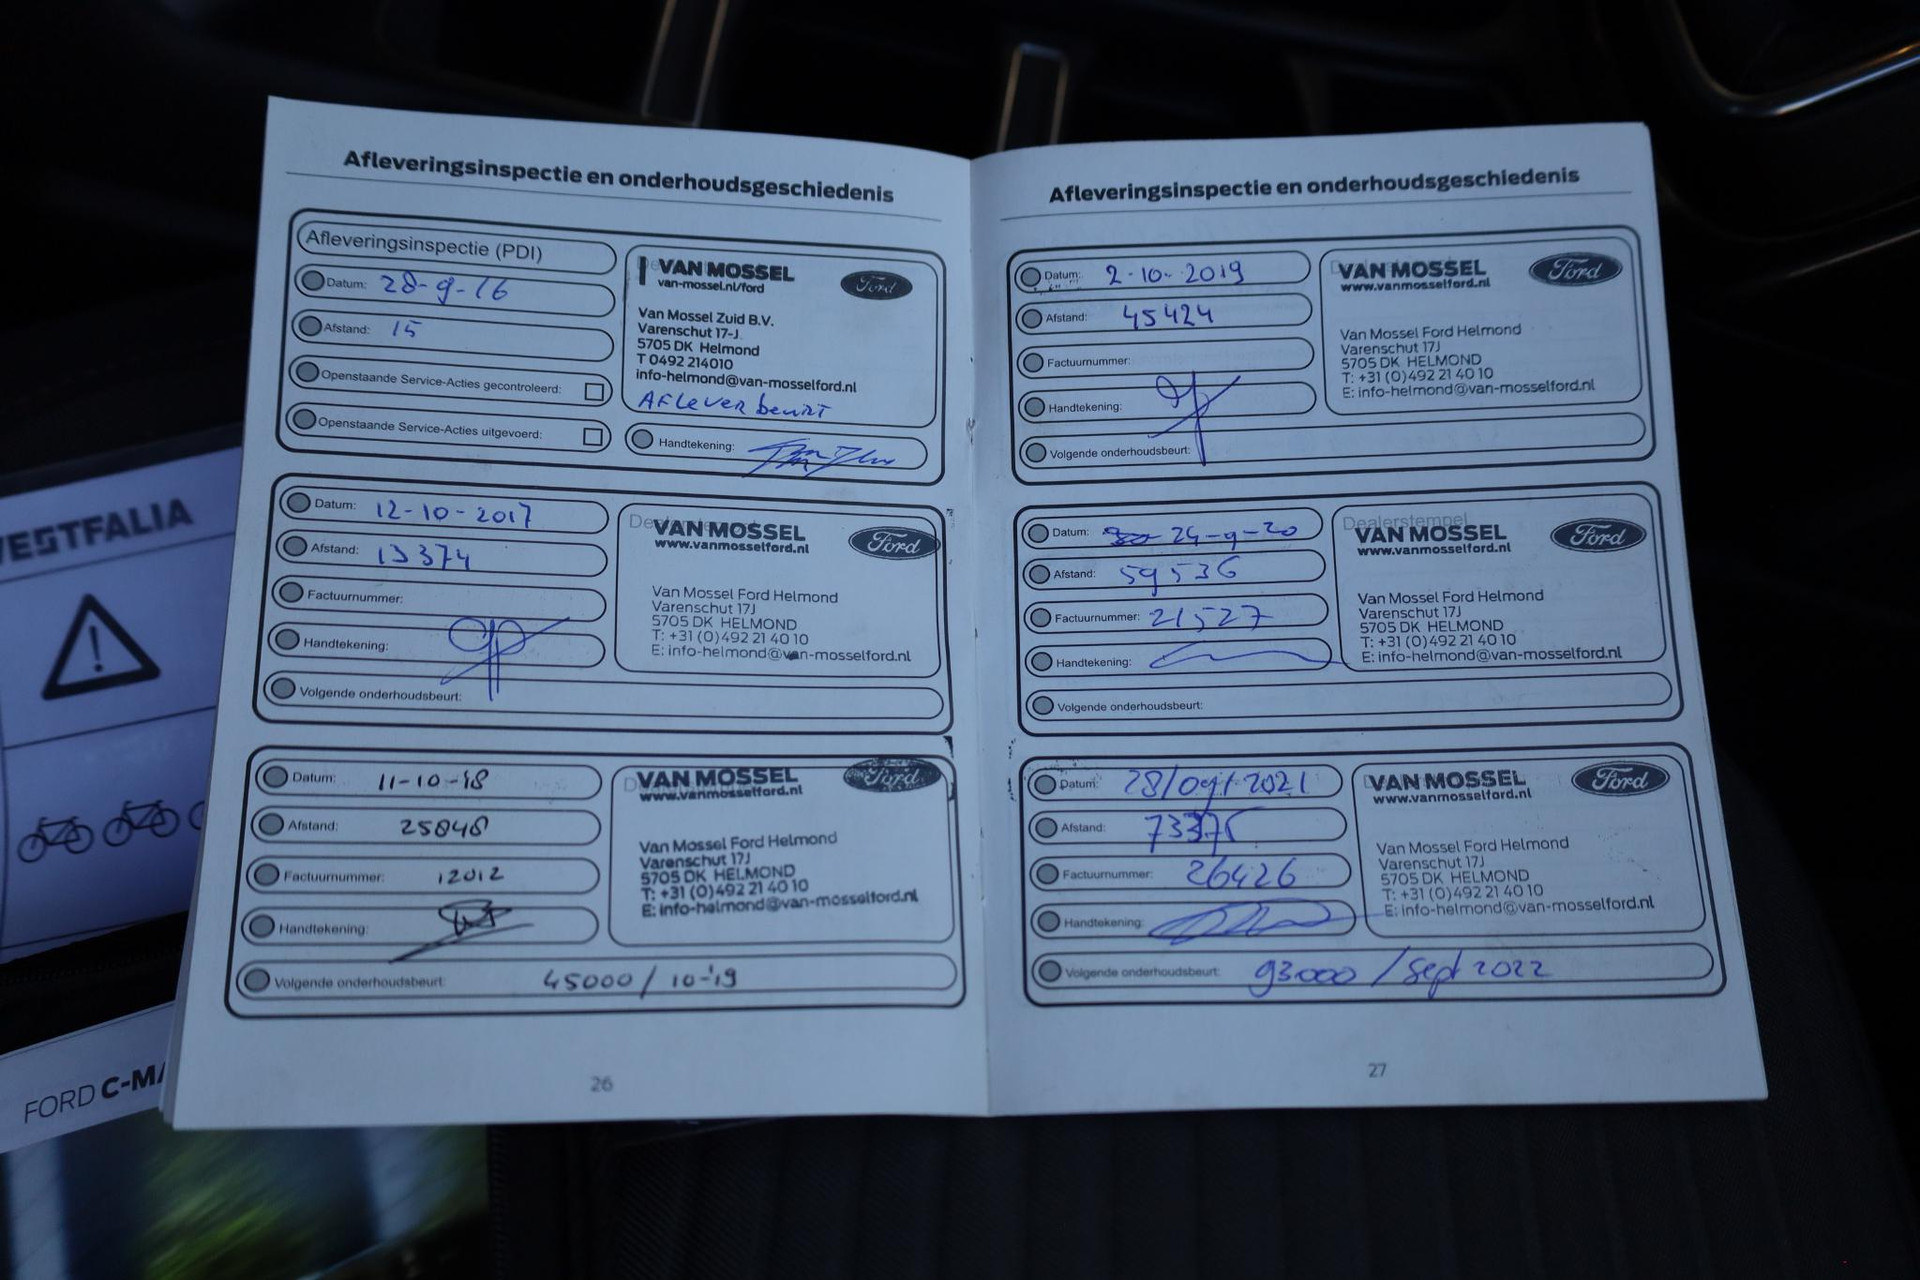 Afleveringsinspectie en onderhoudsgeschiedenis
Afleveringsinspectie (PDI)
Datum: 28-9-16
Afstand: 15
Openstaande Service-Acties gecontroleerd:
Openstaande Service-Acties uitgevoerd:
VAN MOSSEL
van-mossel.nl/ford
Ford
Van Mossel Zuid B.V.
Varenschut 17-J
5705 DK Helmond
T 0492 214010
info-helmond@van-mosselford.nl
Afleverbeurt
Handtekening:
Datum: 12-10-2017
Afstand: 13374
Factuurnummer:
Handtekening:
Volgende onderhoudsbeurt:
VAN MOSSEL
www.vanmosselford.nl
Ford
Van Mossel Ford Helmond
Varenschut 17J
5705 DK HELMOND
T: +31 (0)492 21 40 10
E: info-helmond@van-mosselford.nl
Datum: 11-10-'18
Afstand: 25848
Factuurnummer: 12012
Handtekening:
Volgende onderhoudsbeurt: 45000 / 10-'19
VAN MOSSEL
www.vanmosselford.nl
Ford
Van Mossel Ford Helmond
Varenschut 17J
5705 DK HELMOND
T: +31 (0)492 21 40 10
E: info-helmond@van-mosselford.nl
26
Afleveringsinspectie en onderhoudsgeschiedenis
Datum: 2-10-2019
Afstand: 45424
Factuurnummer:
Handtekening:
Volgende onderhoudsbeurt:
VAN MOSSEL
www.vanmosselford.nl
Ford
Van Mossel Ford Helmond
Varenschut 17J
5705 DK HELMOND
T: +31 (0)492 21 40 10
E: info-helmond@van-mosselford.nl
Datum: 24-9-20
Afstand: 59536
Factuurnummer: 21527
Handtekening:
Volgende onderhoudsbeurt:
Dealerstempel
VAN MOSSEL
www.vanmosselford.nl
Ford
Van Mossel Ford Helmond
Varenschut 17J
5705 DK HELMOND
T: +31 (0)492 21 40 10
E: info-helmond@van-mosselford.nl
Datum: 28/ 2021
Afstand: 73375
Factuurnummer: 26426
Handtekening:
Volgende onderhoudsbeurt: 93.000 / Sept 2022
VAN MOSSEL
www.vanmosselford.nl
Ford
Van Mossel Ford Helmond
Varenschut 17J
5705 DK HELMOND
T: +31 (0)492 21 40 10
E: info-helmond@van-mosselford.nl
27
WESTFALIA
FORD C-MA